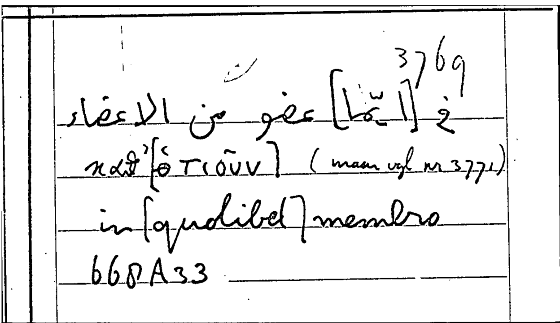 3769
في [أيّما] عضو من الاعضاء
καθ' [ὁτιοῦν] (man vgl nr 3771)
in [quolibet] membro
668A33